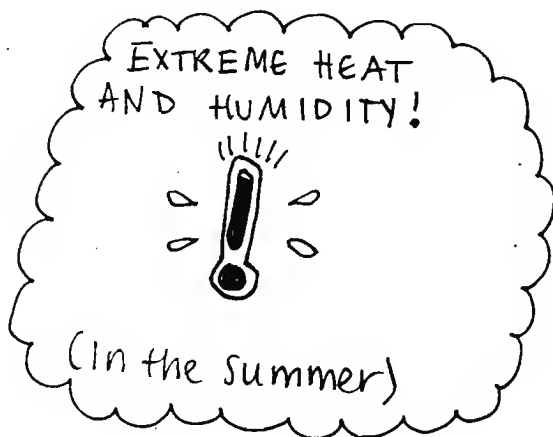 EXTREME HEAT
AND HUMIDITY!
(in the summer)